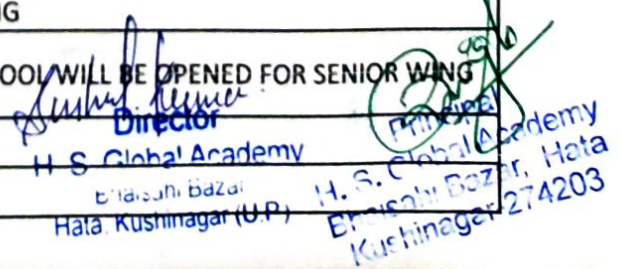 G
OOL WILL BE OPENED FOR SENIOR WING
Director
H. S. Global Academy
Bhaisahi Bazar
Hata, Kushinagar (U.P.)
Principal
H. S. Global Academy
Bhaisahi Bazar, Hata
Kushinagar-274203